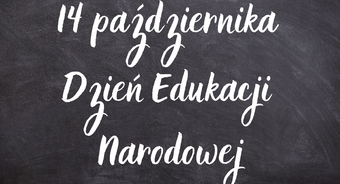 14 października
Dzień Edukacji
Narodowej